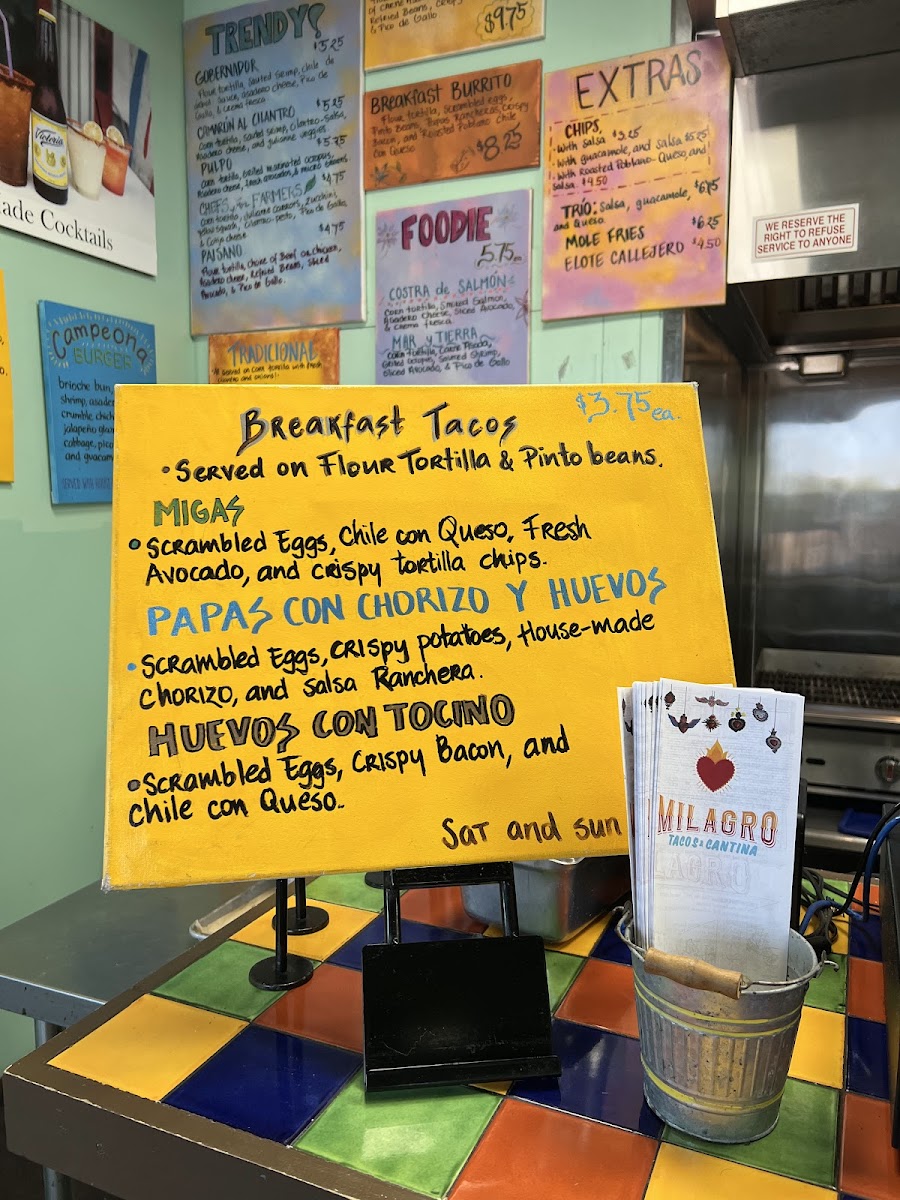 TRENDY
$5.25
GOBERNADOR
Flour tortilla, sauted shrimp, chile de
& crema fresca
CAMARÓN AL CILANTRO $5.25
corn tortilla, sauted shrimp, cilantro-salsa,
Asadero cheese, and julianne veggies.
PULPO $5.75
corn tortilla, Grilled marinated octopus,
Asadero cheese,
CHEFS FARMERS $4.75
corn tortilla, julianne carrots, Zucchini,
yellow squash, cilantro-pesto, Pico de Gallo,
& Cotija cheese
PAISANO $4.75
Flour tortilla, choice of Beef or chicken,
Asadero cheese, Refried Beans, Sliced
Avocado, & Pico de Gallo.
Refried Beans, crispy
& Pico de Gallo
$9.75
BREAKFAST BURRITO
Flour tortilla, scrambled eggs,
Pinto Beans, Papas Rancheras, crispy
Bacon, and Roasted Poblano Chile
con Queso
$8.25
FOODIE
5.75
COSTRA de SALMÓN
Corn tortilla, Smoked Salmon,
Asadero Cheese, Sliced Avocado,
& Crema fresca
MAR y TIERRA
Corn Tortilla, Carne Asada,
Grilled octopus, Sauteed Shrimp,
Sliced Avocado, & Pico de Gallo
EXTRAS
CHIPS,
• With Salsa $3.25
• With guacamole, and Salsa $5.25
• With Roasted Poblano-Queso, and
Salsa $4.50
TRÍO: Salsa, guacamole, $6.75
and Queso.
MOLE FRIES $6.25
ELOTE CALLEJERO $4.50
WE RESERVE THE
RIGHT TO REFUSE
SERVICE TO ANYONE
Victoria
ade Cocktails
Campeona
BURGER
brioche bun,
shrimp, asade
crumble, chich
jalapeño gla
cabbage, pico
and guacam
TRADICIONAL
Breakfast Tacos $3.75 ea.
• Served on Flour Tortilla & Pinto beans.
MIGAS
• Scrambled Eggs, Chile con Queso, Fresh
Avocado, and crispy tortilla chips.
PAPAS CON CHORIZO Y HUEVOS
• Scrambled Eggs, crispy potatoes, House-made
chorizo, and Salsa Ranchera.
HUEVOS CON TOCINO
• Scrambled Eggs, Crispy Bacon, and
Chile con Queso.
Sat and Sun
MILAGRO
TACOS & CANTINA